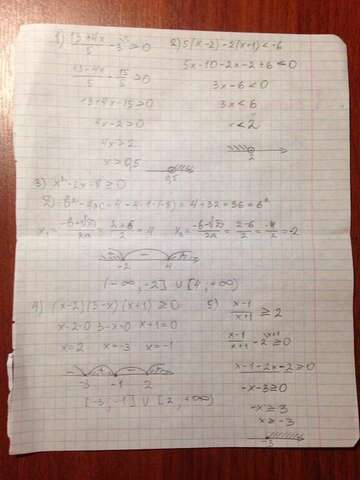 1) (13+4x)/5 - 3 > 0
(13+4x)/5 - 15/5 > 0
13+4x-15>0
4x-2>0
4x>2
x>0,5
0,5
2) 5(x-2)-2(x+1)<-6
5x-10-2x-2+6<0
3x-6<0
3x<6
x<2
2
3) x²-2x-8≥0
D=b²-4ac=4-4·1·(-8)=4+32=36=6²
x₁=(-b+√D)/2a=(2+6)/2=4 x₂=(-b-√D)/2a=(2-6)/2=-4/2=-2
-2 4
(-∞,-2] ∪ [4,+∞)
4) (x-2)(3-x)(x+1)≥0
x-2=0 3-x=0 x+1=0
x=2 x=-3 x=-1
- + - +
-3 -1 2
[-3,-1] ∪ [2,+∞)
5) (x-1)/(x+1) ≥ 2
(x-1)/(x+1) - 2 ≥ 0
x-1-2x-2≥0
-x-3≥0
-x≥3
x≥-3
-3